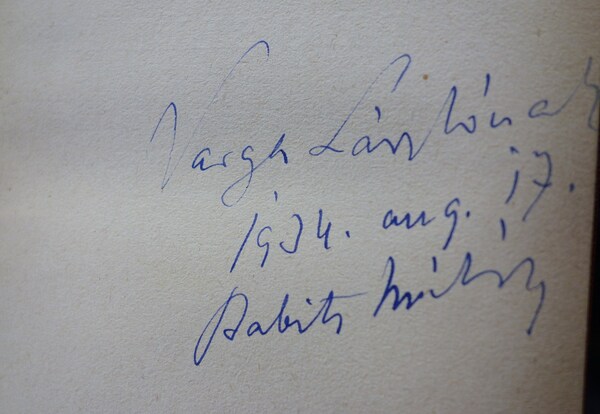 Varga Lászlónak
1934. aug. 17.
Babits Mihály